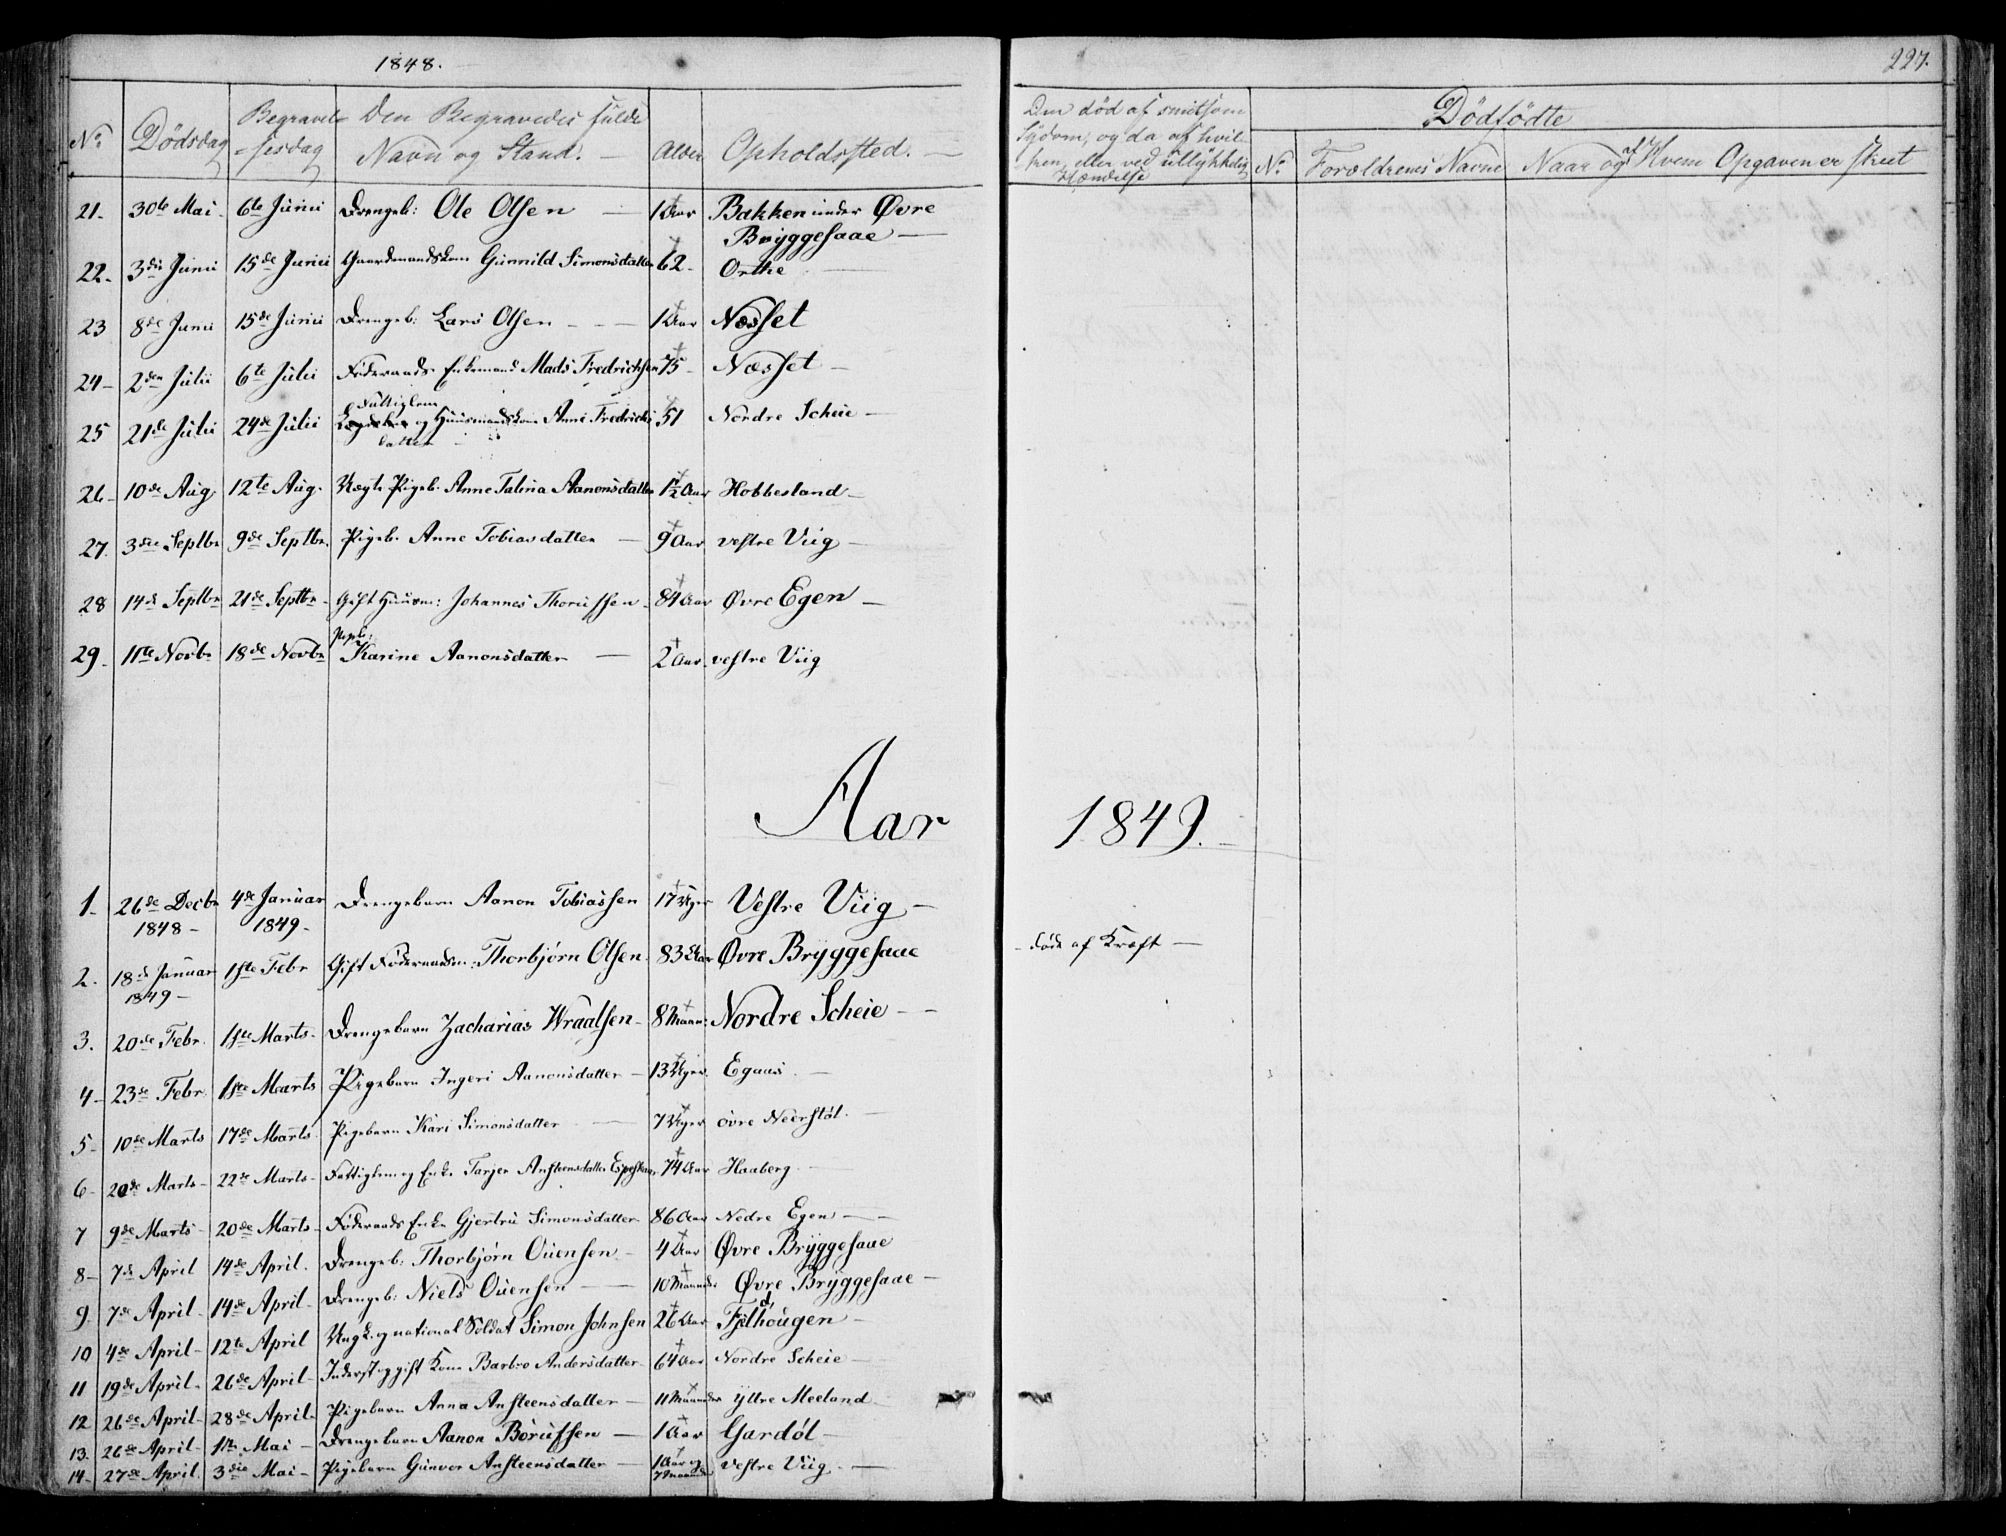 1848.
227.
No Dødsdag Begravel- Den Begravedes fulde Alder Opholdssted. —
=sesdag Navn og Stand. —
Den død af smitsom
Sydom, og da af hvil-
ken, eller ved ullykkelig
Hændelse
Dødfødte
No Forældrenes Navne Naar og af Hvem Opgaven er skeet
21. 30te Mai. 6te Junii Drengeb: Ole Olsen — 1 Aar Bakken under Øvre
Bryggesaae —
22. 3die Junii 15de Junii Gaardmandskone Gunnild Simonsdatter 62. Orthe —
23 8de Junii 15de Junii Drengeb: Lars Olsen — 1 Aar Næsset
24 2den Julii 6te Julii Føderaads Enkemand Mads Fredrichsen 75 Næsset —
Fattiglem
25 21de Julii 24de Julii og Huusmandskone Anne Fredrichs 51 Nordre Scheie —
datter
26 10de Aug. 12te Aug. Uægte Pigeb. Anne Talina Aanonsdatter 1½ Aar Hobbesland —
27. 3die Septbr 9de Septbr. Pigeb. Anne Tobiasdatter — 9 Aar vestre Viig —
28 14de Septbr 21de Septbr Gift Huusm: Johannes Thorussen 84 Aar Øvre Egen —
Pigeb:
29. 11te Novbr 18de Novbr Karine Aanonsdatter — 2 Aar. vestre Viig
Aar 1849.
1. 26de Decbr 4de Januar Drengebarn Aanon Tobiassen 17 Uger Vestre Viig —
1848 — 1849 —
2. 18de Januar 1ste Febr Gift Føderaadsm: Thorbjørn Olsen 83 Aar Øvre Bryggesaae — døde af Kræft —
1849 —
3. 20de Febr. 1ste Marts Drengebarn Zacharias Wraalsen 8 Maan: Nordre Scheie —
4 23de Febr. 1ste Marts Pigebarn Ingeri Aanonsdatter — 13 Uger. Egaas —
5 10de Marts 17de Marts Pigebarn Kari Simonsdatter — 7 Uger øvre Neerstøl. —
6 20de Marts 22de Marts Fattiglem og Enke Tarjer Ansteensdatter 74 Aar Haaberg. —
7 9de Marts 20de Marts Føderaads Enke Gjertru Simonsdatter 86 Aar Nedre Egen —
8 7de April 14de April. Drengeb: Thorbjørn Ouensen — 4 Aar Øvre Bryggesaae
9. 7de April 14de April Drengeb: Niels Ouensen — 10 Maaneder Øvre Bryggesaae —
10 4de April 12te April Ungk. og national Soldat Simon Johnsen 26 Aar Fjeldhougen —
11 19de April 26de April Inderst og gift Kone Barbro Andersdatter 64 Aar Nordre Scheie —
12 26de April 28de April Pigebarn Anna Ansteensdatter — 11 Maaneder yttre Meeland
13. 26de April 1ste Mai Drengebarn Aanon Børussen — 1 Aar Gardøl —
14 27de April. 3die Mai Pigebarn Gunvor Ansteensdatter — 1 Aar og vestre Viig. —
7 Maaneder